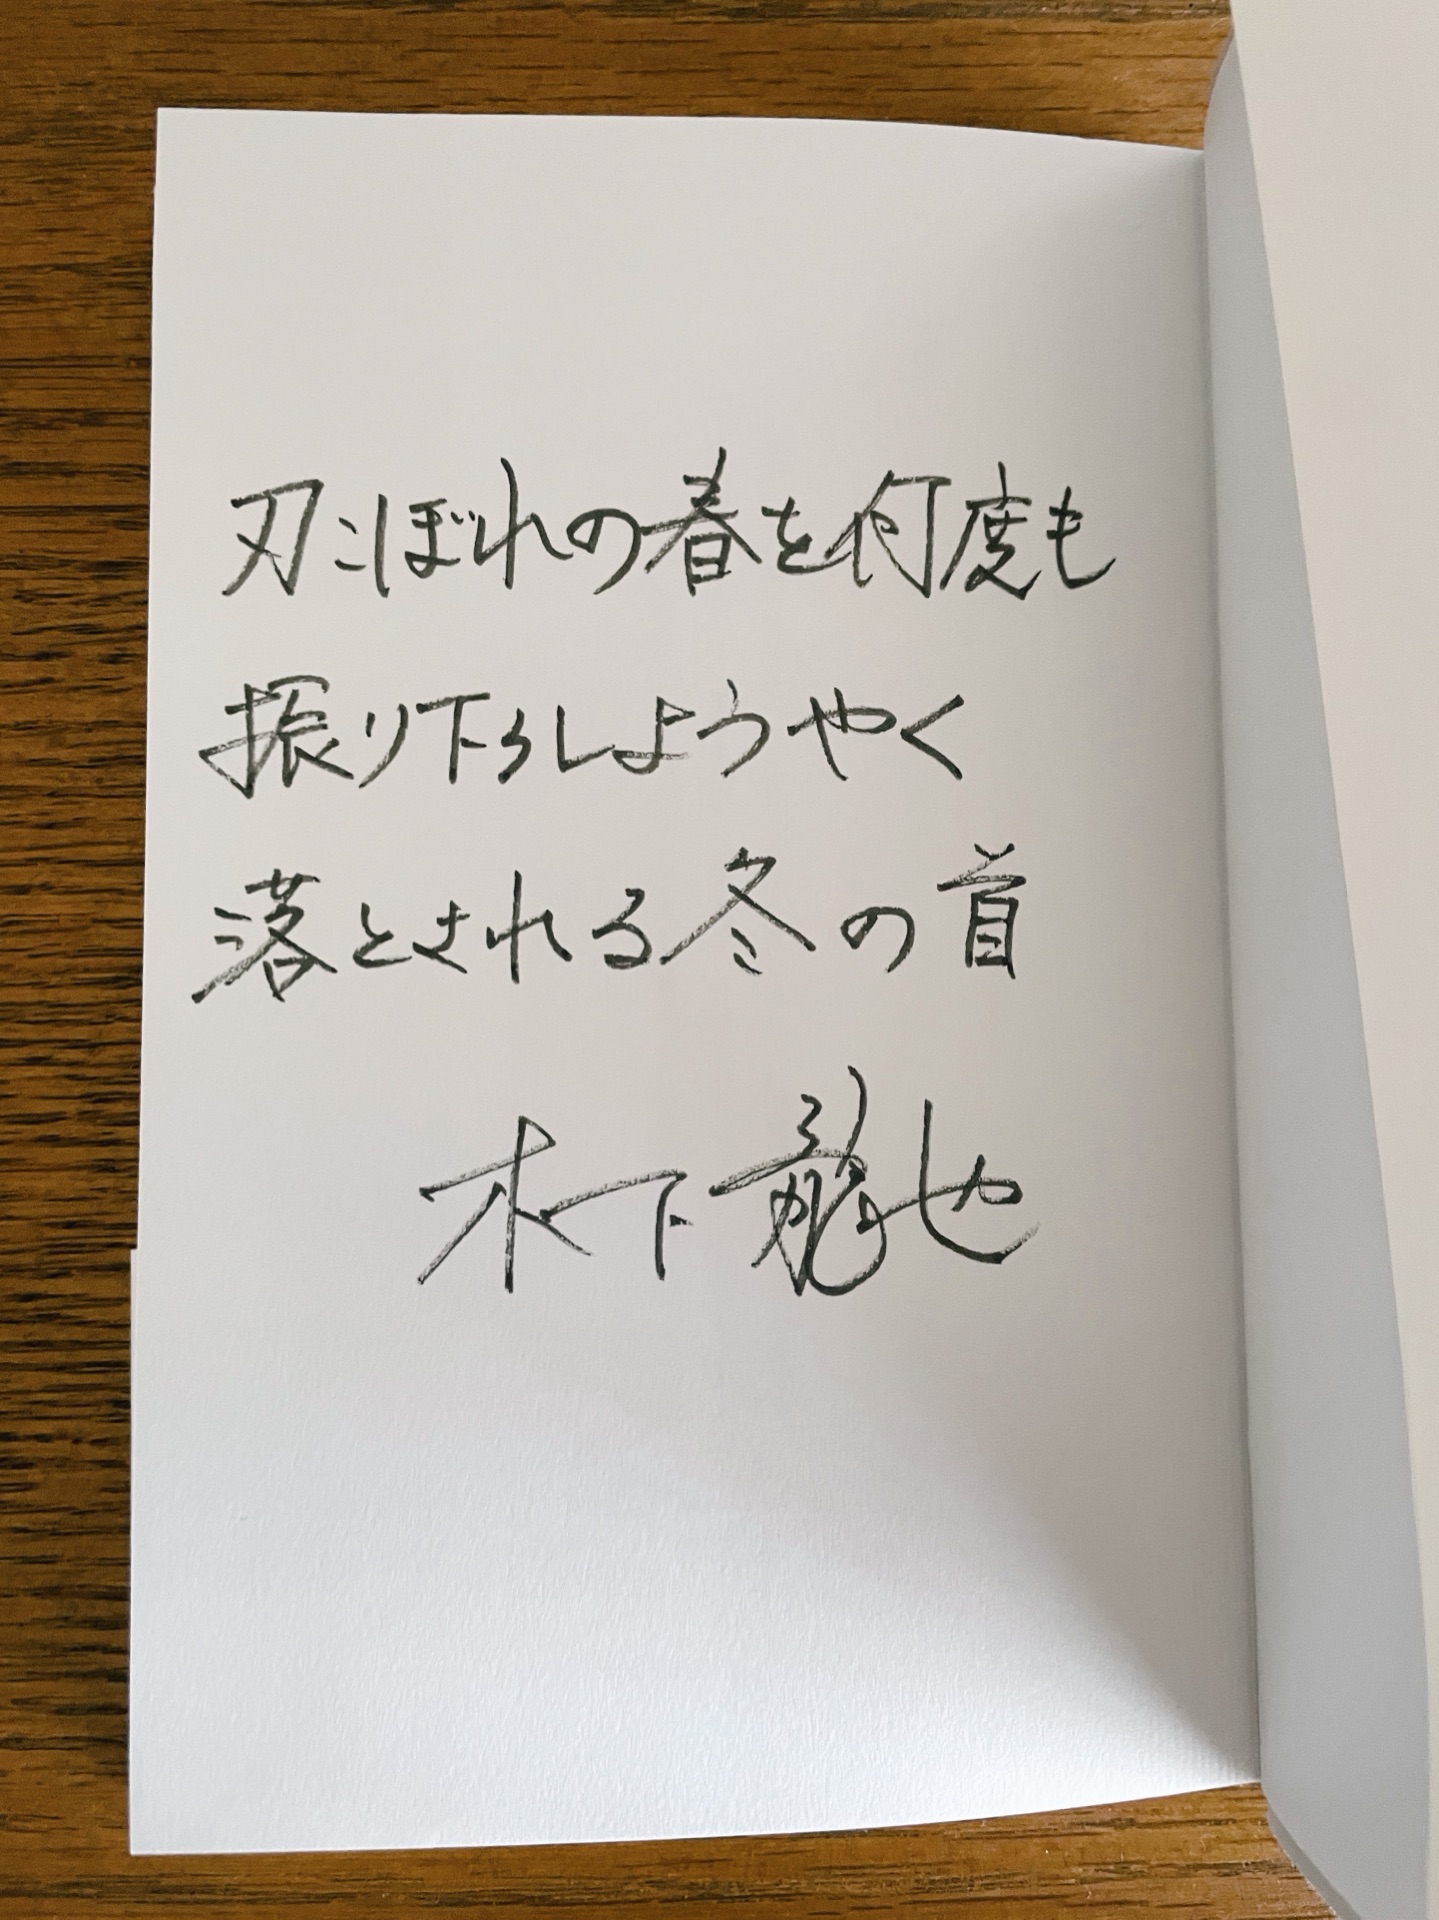 刃こぼれの春を何度も
振り下ろしようやく
落とされる冬の首
木下龍也